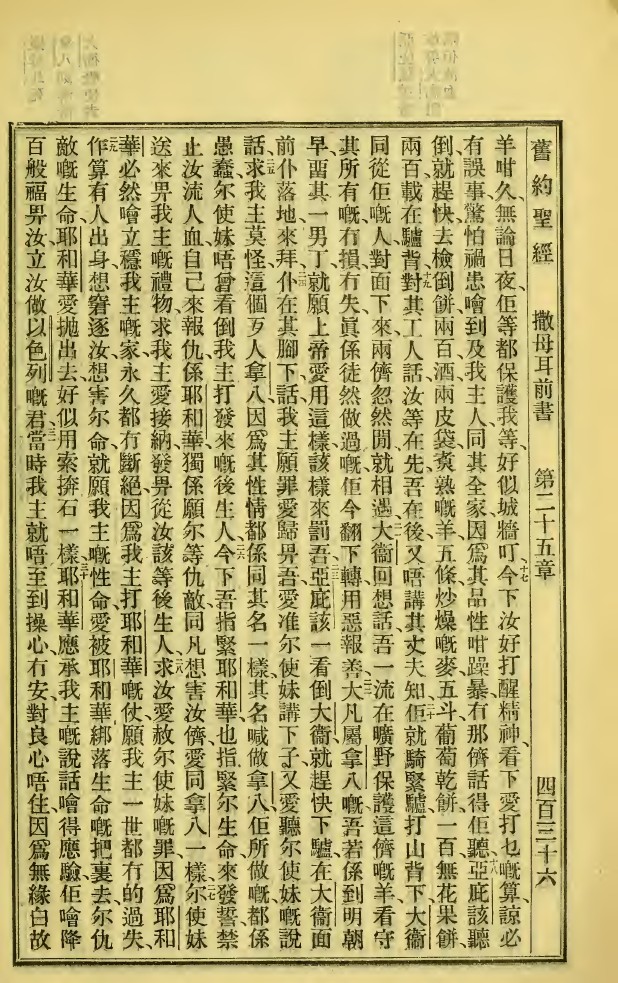 舊約聖經 撒母耳前書 第二十五章 四百三十六
羊咁久、無論日夜、佢等都保護我等、好似城牆叮、十七今下汝好打醒精神、看下愛打乜嘅算、諒必
有誤事、驚怕禍患噲到及我主人、同其全家、因爲其品性咁躁暴、冇那儕話得佢聽、十八亞庇該聽
倒、就趕快去檢倒餅兩百、酒兩皮袋、煑熟嘅羊五條、炒燥嘅麥五斗、葡萄乾餅一百、無花果餅
兩百、載在驢背、十九對其工人話、汝等在先、吾在後、又唔講其丈夫知、二十佢就騎緊驢、打山背下、大衞
同從佢嘅人、對面下來、兩儕忽然間就相遇、二一大衞回想話、吾一流在曠野保護這儕嘅羊、看守
其所有嘅冇損冇失、眞係徒然做過嘅、佢今翻下轉用惡報善、二二大凡屬拿八嘅、吾若係到明朝
早、畱其一男丁、就願上帝愛用這樣該樣來罰吾、二三亞庇該一看倒大衞、就趕快下驢、在大衞面
前仆落地來拜、二四仆在其腳下、話、我主、願罪愛歸畀吾、愛准尔使妹講下子、又愛聽尔使妹嘅說
話、二五求我主莫怪這個歹人拿八、因爲其性情都係同其名一樣、其名喊做拿八、佢所做嘅都係
愚蠢、尔使妹唔曾看倒我主打發來嘅後生人、二六今下吾指緊耶和華也、指緊尔生命來發誓、禁
止汝流人血、自己來報仇、係耶和華、獨係願尔等仇敵、同凡想害汝儕、愛同拿八一樣、二七尔使妹
送來畀我主嘅禮物、求我主愛接納、發畀從汝該等後生人、二八求汝愛赦尔使妹嘅罪、因爲耶和
華必然噲立穩我主嘅家、永久都冇斷絕、因爲我主打耶和華嘅仗、願我主一世都冇的過失、
二九作算有人出身、想窘逐汝、想害尔命、就願我主嘅性命、愛被耶和華綁落生命嘅把裏去、尔仇
敵嘅生命、耶和華愛抛出去、好似用索㧻石一樣、三十耶和華應承我主嘅說話、噲得應驗、佢噲降
百般福畀汝、立汝做以色列嘅君、三一當時我主就唔至到操心冇安、對良心唔住、因爲無緣白故